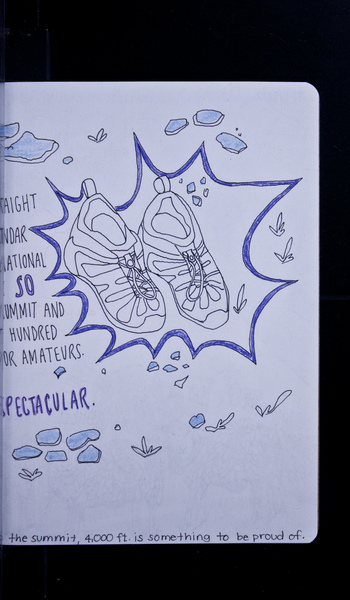 SO
SUMMIT AND
HUNDRED
OR AMATEURS.
SPECTACULAR.
the summit, 4,000 ft. is something to be proud of.